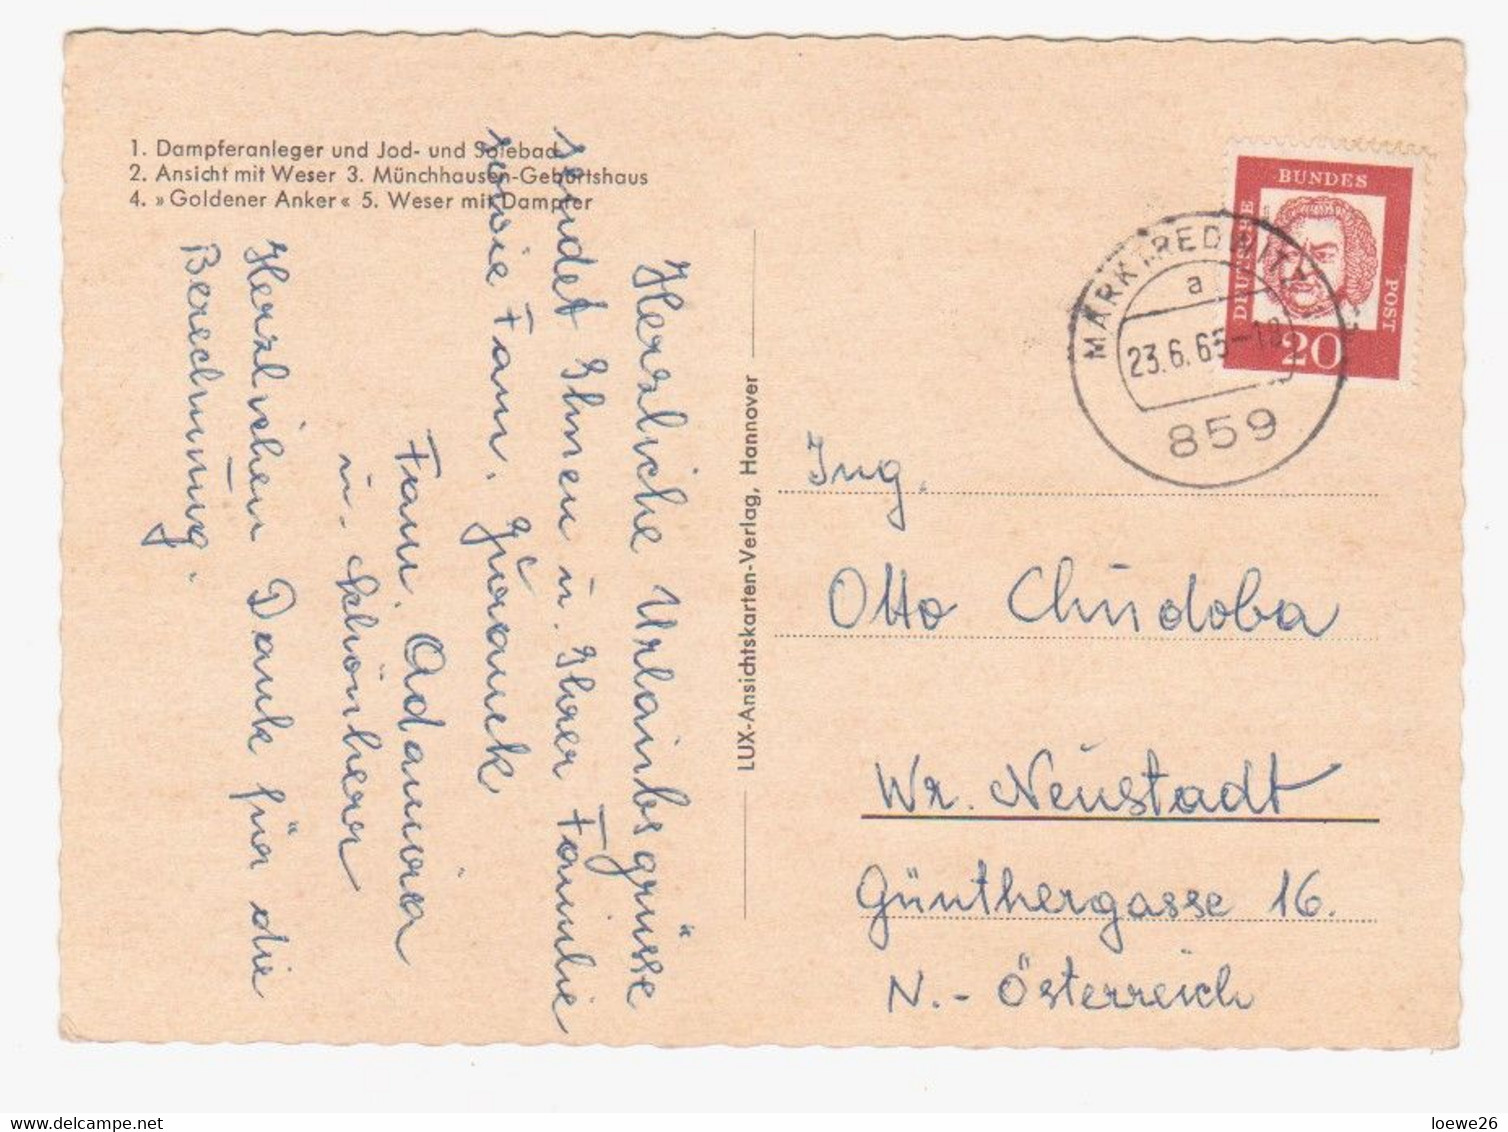 1. Dampferanleger und Jod- und Solebad
2. Ansicht mit Weser 3. Münchhausen-Geburtshaus
4. »Goldener Anker« 5. Weser mit Dampfer
Herzliche Urlaubsgrüsse
sendet Ihnen u. Ihrer Familie
sowie Fam.
Fam. Adamira
u. Schönherr
Herzlichen Dank für die
Berechnung.
LUX-Ansichtskarten-Verlag, Hannover
DEUTSCHE BUNDES POST
20
MARKTREDWITZ
a
23.6.65-18
859
Ing.
Otto Chudoba
Wr. Neustadt
Günthergasse 16.
N.-Österreich
loewe26